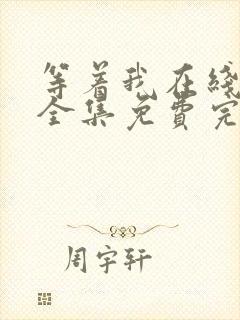 等着我在线
全集免费完
周宇轩